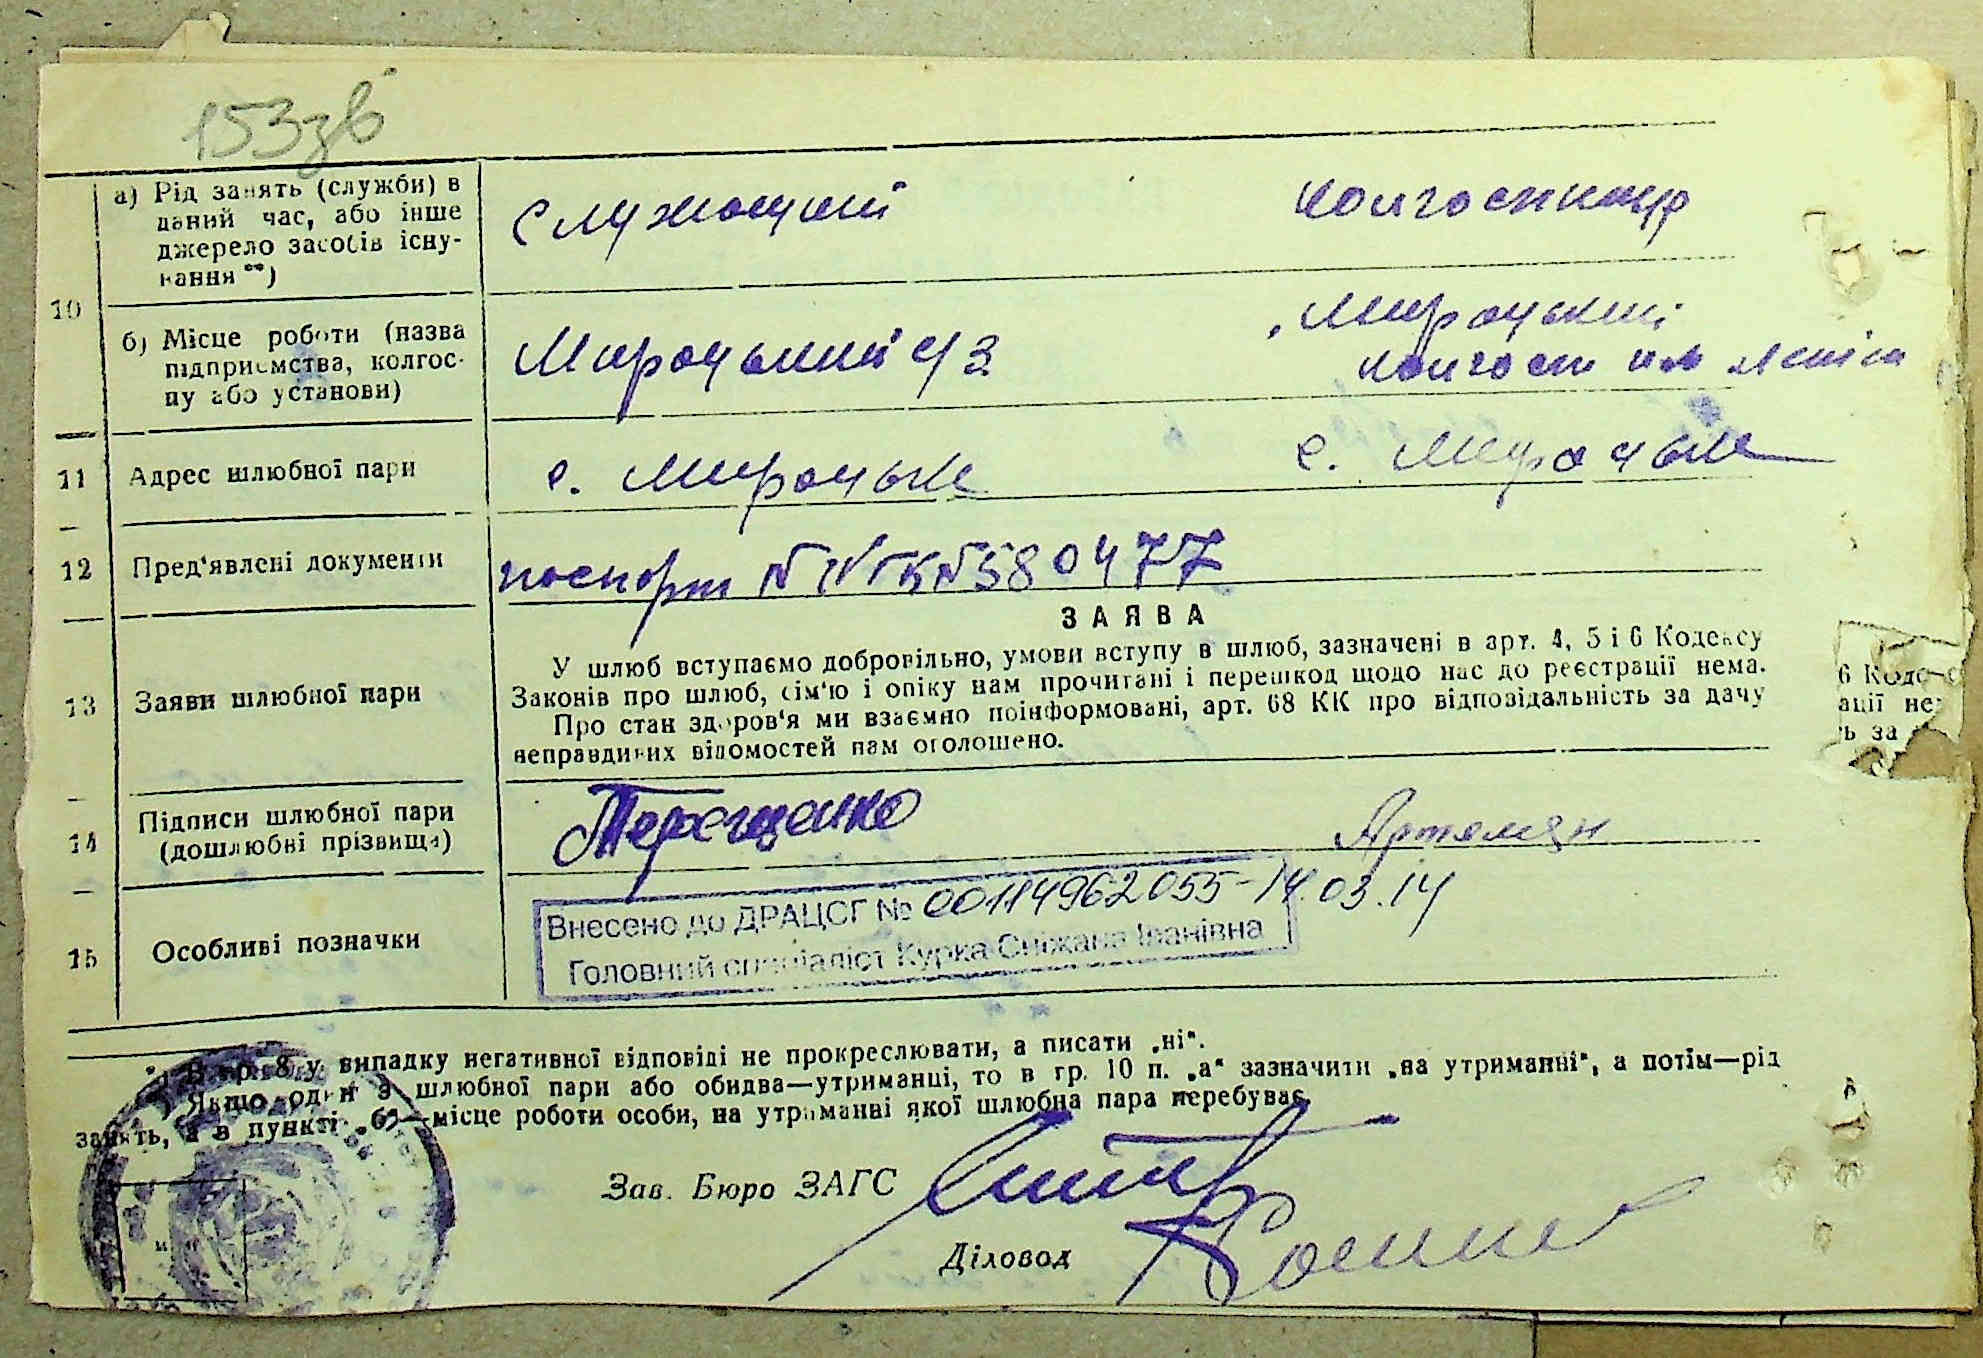 153зв
10
а) Рід занять (служби) в
даний час, або інше
джерело засобів існу-
вання**)
служащий
колгоспниця
б) Місце роботи (назва
підприємства, колгос-
пу або установи)
Мироцький с/з
Мироцький
колгосп им Леніна
11
Адрес шлюбної пари
с. Мироцьке
с. Мироцьке
12
Пред'явлені документи
паспорт № 580477
13
Заяви шлюбної пари
ЗАЯВА
У шлюб вступаємо добровільно, умови вступу в шлюб, зазначені в арт. 4, 5 і 6 Кодексу
Законів про шлюб, сім'ю і опіку нам прочитані і перешкод щодо нас до реєстрації нема.
Про стан здоров'я ми взаємно поінформовані, арт. 68 КК про відповідальність за дачу
неправдивих відомостей нам оголошено.
6 Коде
ації не
ь за
14
Підписи шлюбної пари
(дошлюбні прізвища)
Терещенко
Артемян
15
Особливі позначки
Внесено до ДРАЦСГ № 00114962055-14.03.14
Головний спеціаліст Курка Сніжана Іванівна
*) В гр. 8 у випадку негативної відповіді не прокреслювати, а писати „ні".
Якщо один з шлюбної пари або обидва—утриманці, то в гр. 10 п. „а" зазначити „на утриманні", а потім—рід
занять, а в пункті „б"—місце роботи особи, на утриманні якої шлюбна пара перебуває.
Зав. Бюро ЗАГС
Діловод